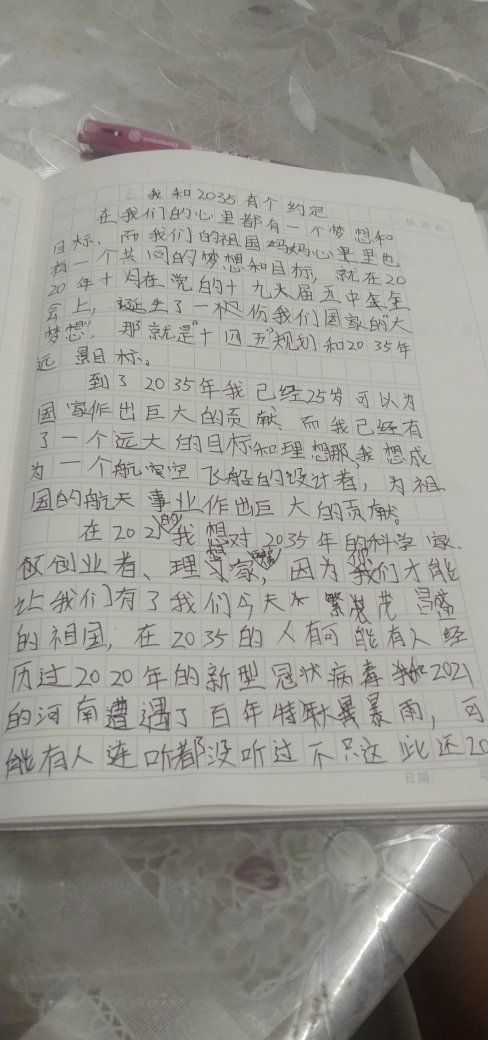 我和2035有个约定
在我们的心里都有一个梦想和
目标，而我们的祖国妈妈心里里也
有一个共同的梦想和目标，就在20
20年十月在党的十九大届五中全
会上，诞生了一份我们国家的“大
梦想”，那就是“十四五”规划和2035年
远景目标。
到了2035年我已经25岁可以为
国家作出巨大的贡献，而我已经有
了一个远大的目标和理想那，我想成
为一个航空飞船的设计者，为祖
国的航天事业作出巨大的贡献。
在2021的我想对2035年的科学家、
创业者、理想家，因为你们才能
让我们有了我们今天繁荣昌盛
的祖国，在2035的人有可能有人经
历过2020年的新型冠状病毒和2021
的河南遭遇了百年特大暴雨，可
能有人连听都没听过不只这此还20
日期：